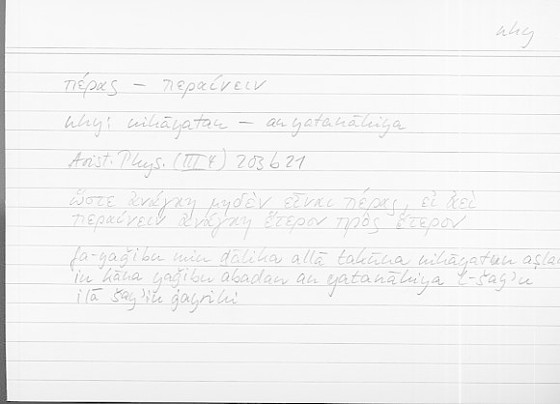 nhy
πέρας – περαίνειν
nhy: nihāyatan – an yatanāhiya
Arist. Phys. (III 4) 203 b 21
ὥστε ἀνάγκη μηδὲν εἶναι πέρας, εἰ ἀεὶ
περαίνειν ἀνάγκη ἕτερον πρὸς ἕτερον
fa-yaǧibu min ḏālika allā takūna nihāyatun aṣlan
in kāna yaǧibu abadan an yatanāhiya l-šayʾu
ilā šayʾin ġayrihi